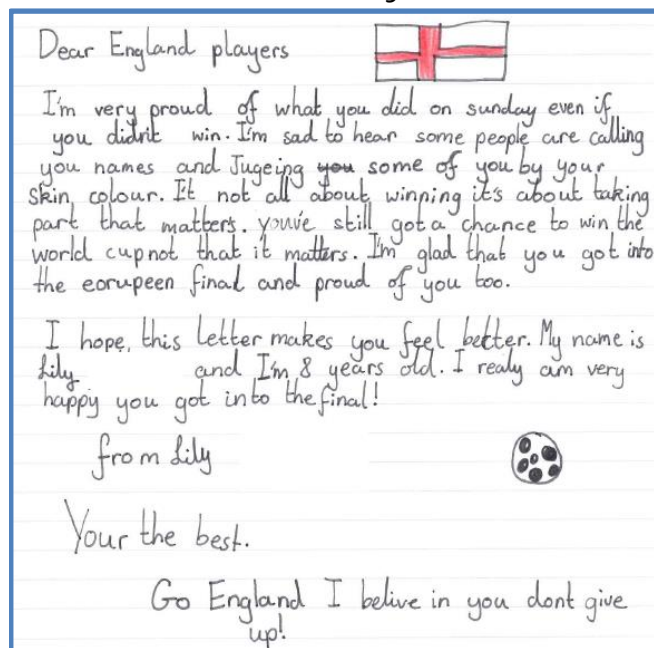 Dear England players
I'm very proud of what you did on sunday even if
you didn't win. I'm sad to hear some people are calling
you names and Jugeing you some of you by your
skin colour. It not all about winning it's about taking
part that matters. youv'e still got a chance to win the
world cup not that it matters. I'm glad that you got into
the eorupeen final and proud of you too.
I hope, this letter makes you feel better. My name is
Lily and I'm 8 years old. I realy am very
happy you got into the final!
from Lily
Your the best.
Go England I belive in you dont give
up!